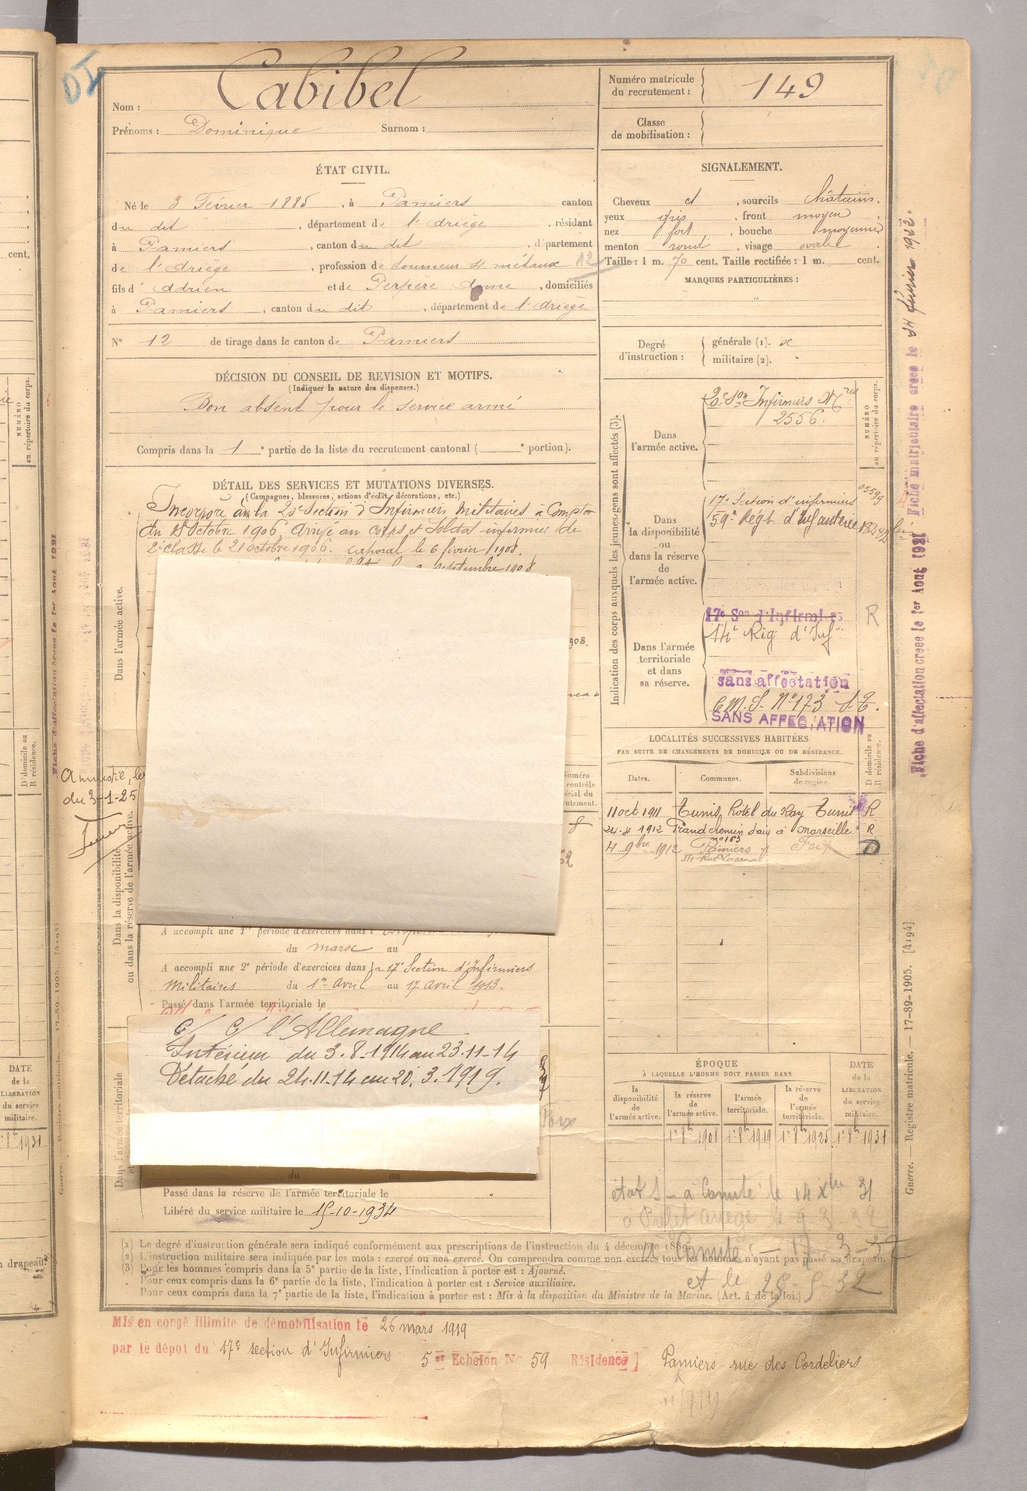 Nom : Cabibel
Prénoms : Dominique Surnom :
Numéro matricule du recrutement : 149
Classe de mobilisation :
ÉTAT CIVIL.
Né le 3 Février 1885, à Pamiers canton
du dit, département de l'Ariège, résidant
à Pamiers, canton du dit, département
de l'Ariège, profession de tourneur s/ métaux A2
fils d' Adrien et de Perpère Anne, domiciliés
à Pamiers, canton du dit, département de l'Ariège
N° 12 de tirage dans le canton de Pamiers
SIGNALEMENT.
Cheveux et, sourcils châtains.
yeux gris, front moyen
nez fort, bouche moyenne
menton rond, visage ovale
Taille : 1 m. 70 cent. Taille rectifiée : 1 m. cent.
MARQUES PARTICULIÈRES :
Degré d'instruction : générale (1).
militaire (2).
DÉCISION DU CONSEIL DE REVISION ET MOTIFS.
(Indiquer la nature des dispenses.)
Bon absent pour le service armé
Compris dans la 1e partie de la liste du recrutement cantonal ( e portion).
DÉTAIL DES SERVICES ET MUTATIONS DIVERSES.
(Campagnes, blessures, actions d'éclat, décorations, etc.)
Incorporé à la Section d'Infirmiers Militaires à compter
du Octobre 1906, arrivé au corps et soldat infirmier de
2e classe le 21 octobre 1906. caporal le 6 février 1908.
septembre 1908
Dans l'armée active.
Dans la disponibilité ou dans la réserve de l'armée active.
Amnistie, loi
du 3-1-25
A accompli une 1re période d'exercices dans
du maroc au
A accompli une 2e période d'exercices dans la 17e Section d'Infirmiers
Militaires du 1er Avril au 17 Avril 1913.
Passé dans l'armée territoriale le
C/ C/ l'Allemagne
Intérieur du 3-8-1914 au 23-11-14
Détaché du 24.11.14 au 20.3.1919.
Foix
du au
Passé dans la réserve de l'armée territoriale le
Libéré du service militaire le 15-10-1934
Indication des corps auxquels les jeunes gens sont affectés (3).
NUMÉRO au répertoire du corps.
Dans l'armée active.
Son Infirmiers Mres
2556.
Dans la disponibilité ou dans la réserve de l'armée active.
17e Section d'infirmiers
59e Régt d'Infanterie
Dans l'armée territoriale et dans sa réserve.
17e Son d'Infirmiers R
14e Rég d'Inf
sans affectation
C.M.S. N° 173
SANS AFFECTATION
LOCALITÉS SUCCESSIVES HABITÉES
PAR SUITE DE CHANGEMENTS DE DOMICILE OU DE RÉSIDENCE.
Dates. Communes. Subdivisions de région. D domicile ou R résidence.
11 oct 1911 Tunis, Hotel du Ray Tunis R
24-4 1912 Grand chemin d'aix à Marseille R
n° 163
4 9bre 1912 Pamiers Foix D
ÉPOQUE
À LAQUELLE L'HOMME DOIT PASSER DANS
la disponibilité de l'armée active. la réserve de l'armée active. l'armée territoriale. la réserve de l'armée territoriale.
DATE de la LIBÉRATION du service militaire.
1er 8bre 1908 1er 8bre 1919 1er 8bre 1925 1er 8bre 1931
et le 28-5-32
(1) Le degré d'instruction générale sera indiqué conformément aux prescriptions de l'instruction du 4 décembre 1889.
(2) L'instruction militaire sera indiquée par les mots : exercé ou non exercé. On comprendra comme non exercés tous les hommes n'ayant pas passé au drapeau.
(3) Pour les hommes compris dans la 5e partie de la liste, l'indication à porter est : Ajourné.
Pour ceux compris dans la 6e partie de la liste, l'indication à porter est : Service auxiliaire.
Pour ceux compris dans la 7e partie de la liste, l'indication à porter est : Mis à la disposition du Ministre de la Marine. (Art. 4 de la loi.)
Mis en congé illimité de démobilisation le 26 mars 1919
par le dépot du 17e section d'Infirmiers 5er Echelon N° 59 Résidence Pamiers rue des Cordeliers
Fiche matriculaire créée le 14 février 1922.
Fiche d'affectation créée le 1er Aout 1921
Guerre. — Registre matricule. — 17-89-1905. [4194]